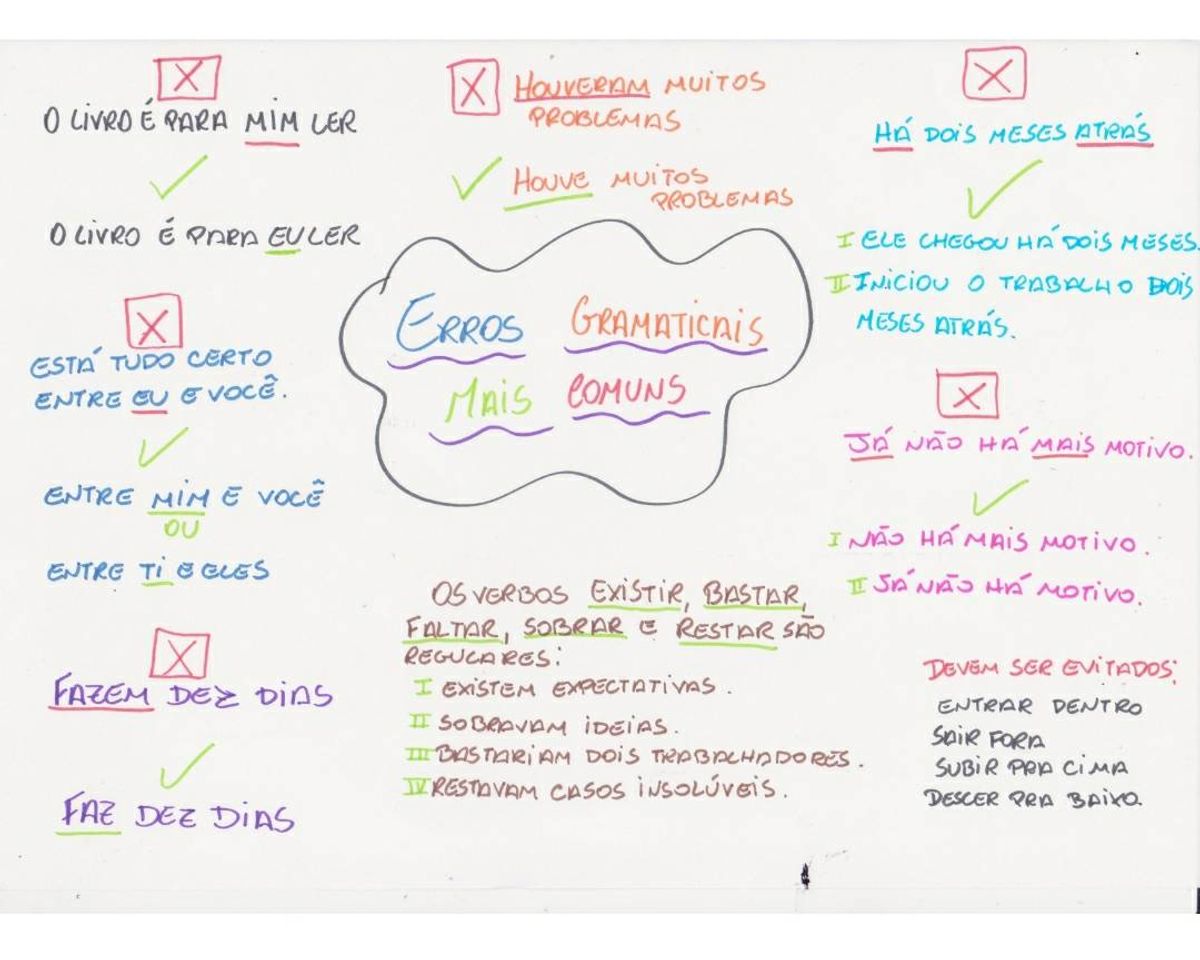 O LIVRO É PARA MIM LER
O LIVRO É PARA EU LER
ESTÁ TUDO CERTO
ENTRE EU E VOCÊ.
ENTRE MIM E VOCÊ
OU
ENTRE TI E ELES
FAZEM DEZ DIAS
FAZ DEZ DIAS
HOUVERAM MUITOS
PROBLEMAS
HOUVE MUITOS
PROBLEMAS
ERROS GRAMATICAIS
MAIS COMUNS
OS VERBOS EXISTIR, BASTAR,
FALTAR, SOBRAR E RESTAR SÃO
REGULARES:
I EXISTEM EXPECTATIVAS.
II SOBRAVAM IDEIAS.
III BASTARIAM DOIS TRABALHADORES.
IV RESTAVAM CASOS INSOLÚVEIS.
HÁ DOIS MESES ATRÁS
I ELE CHEGOU HÁ DOIS MESES.
II INICIOU O TRABALHO DOIS
MESES ATRÁS.
JÁ NÃO HÁ MAIS MOTIVO.
I NÃO HÁ MAIS MOTIVO.
II JÁ NÃO HÁ MOTIVO.
DEVEM SER EVITADOS:
ENTRAR DENTRO
SAIR FORA
SUBIR PRA CIMA
DESCER PRA BAIXO.